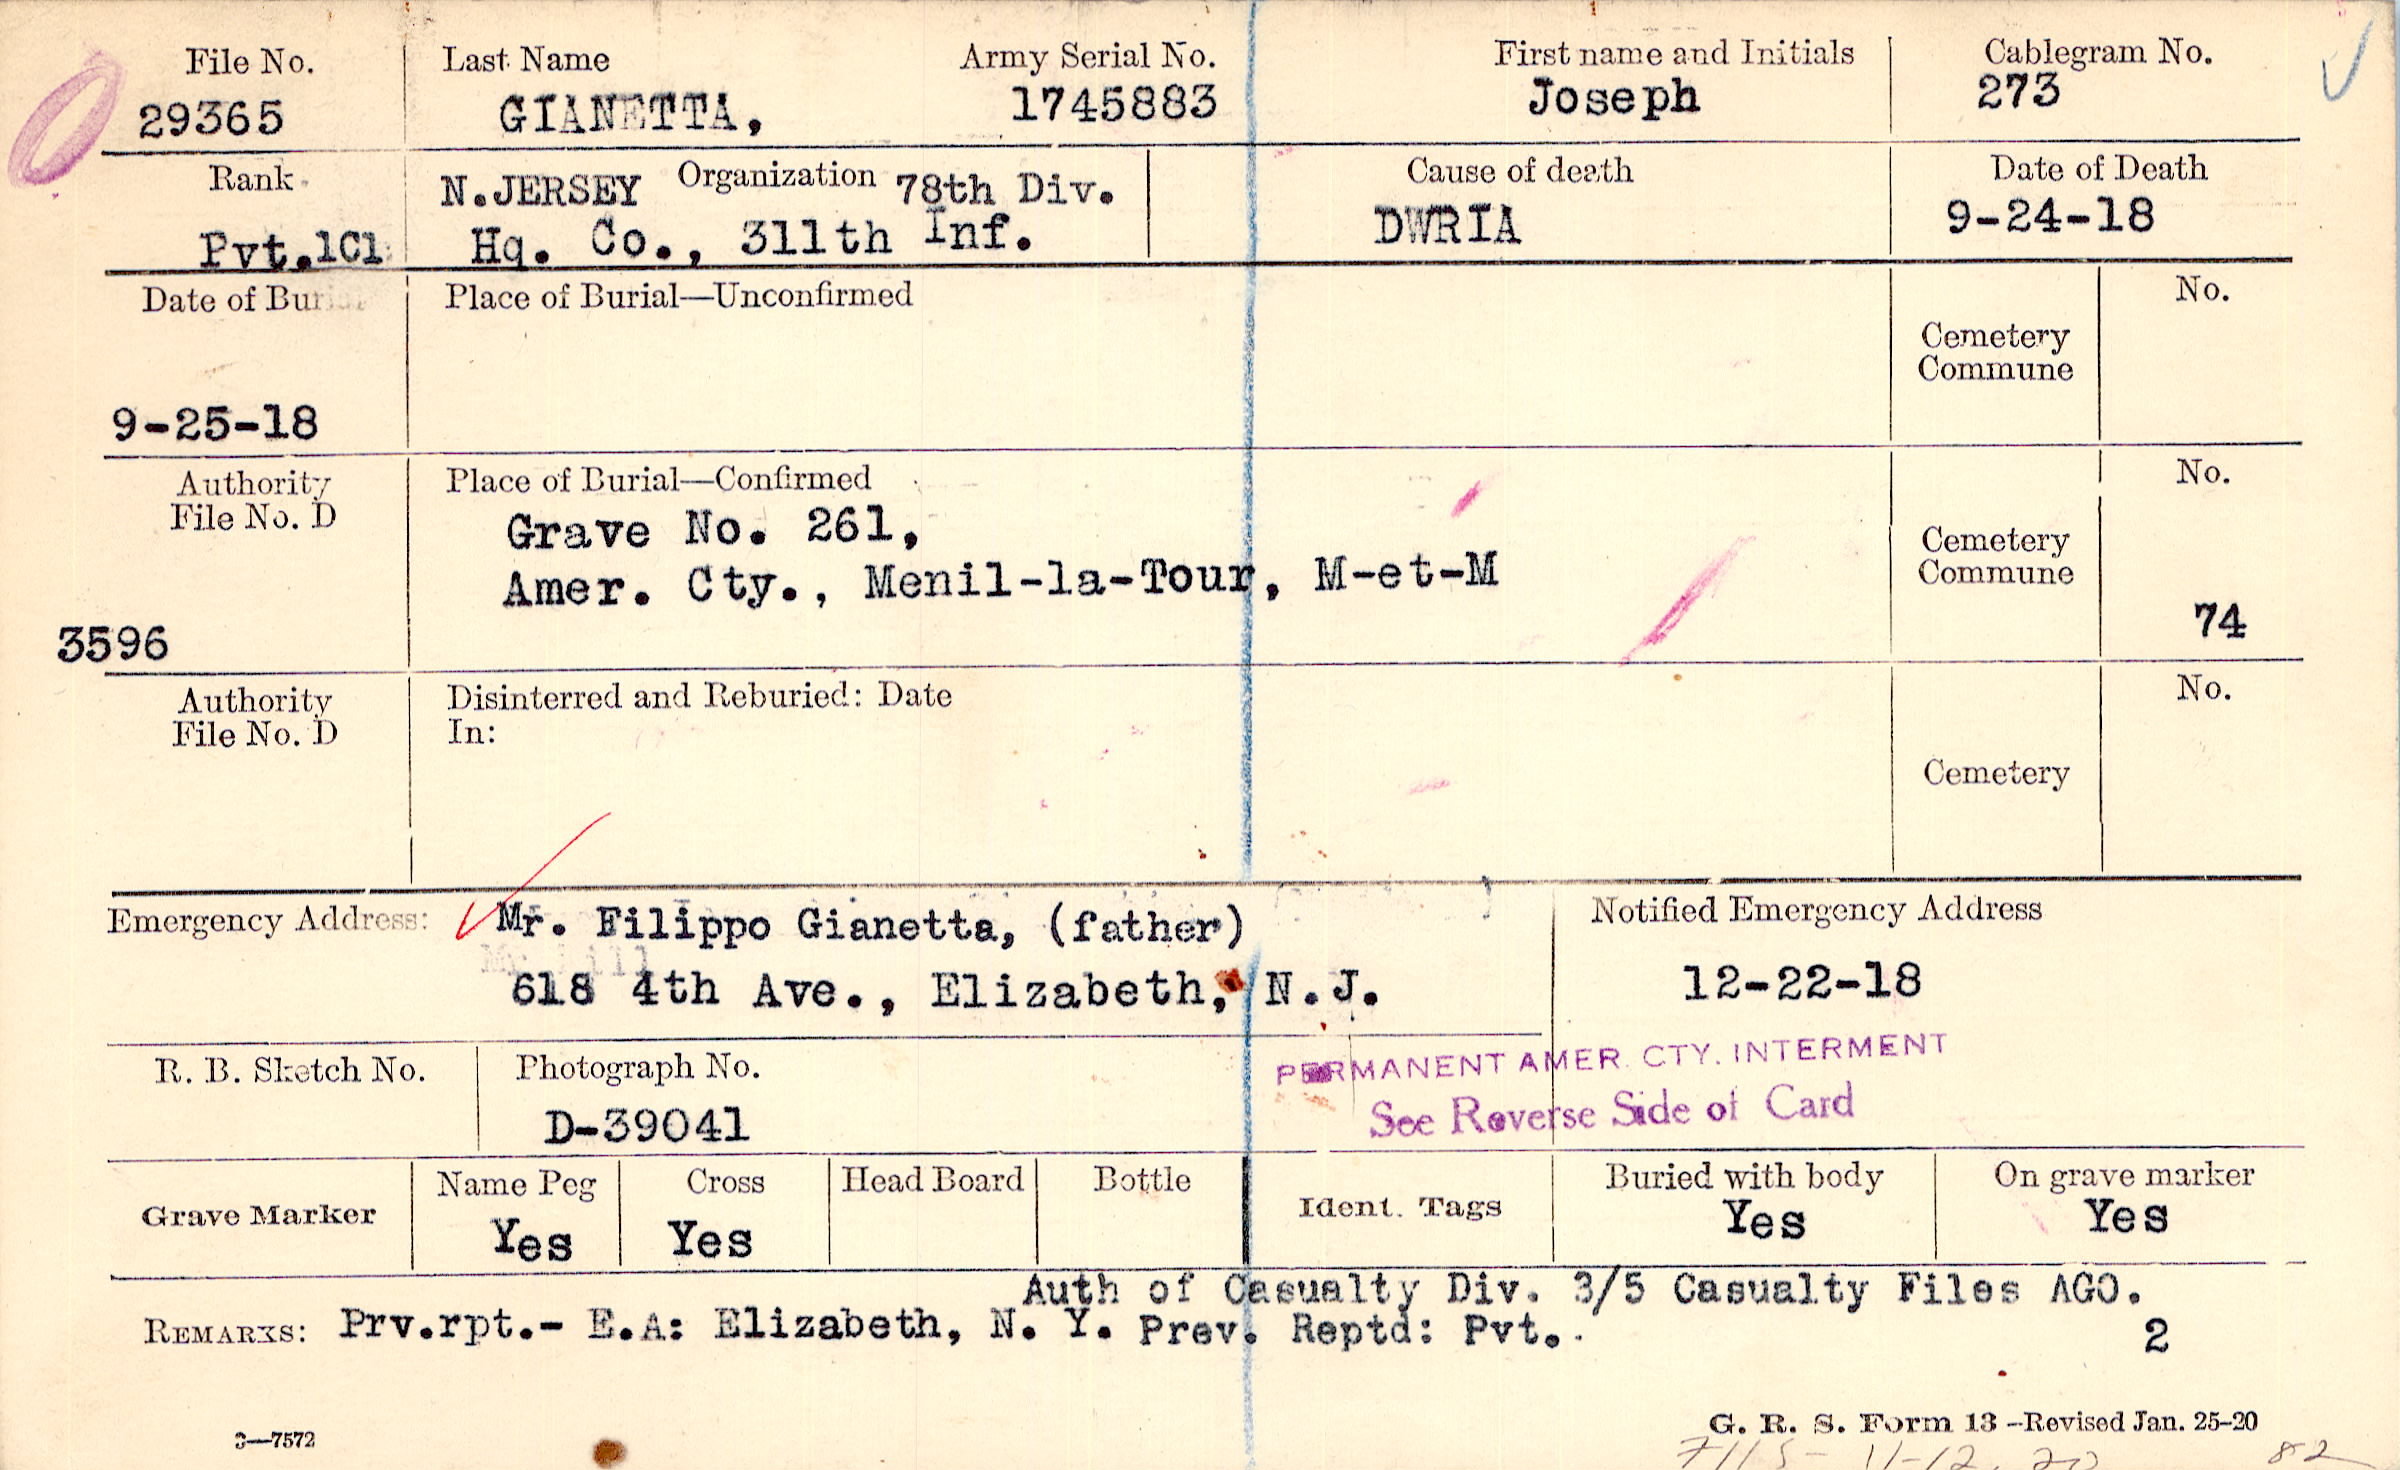 File No. Last Name Army Serial No. First name and Initials Cablegram No.
29365 GIANETTA, 1745883 Joseph 273
Rank N.JERSEY Organization 78th Div. Cause of death Date of Death
Pvt.1Cl Hq. Co., 311th Inf. DWRIA 9-24-18
Date of Burial Place of Burial—Unconfirmed No.
Cemetery
Commune
9-25-18
Authority Place of Burial—Confirmed No.
File No. D Grave No. 261,
Amer. Cty., Menil-la-Tour, M-et-M Cemetery
Commune
3596 74
Authority Disinterred and Reburied: Date No.
File No. D In:
Cemetery
Emergency Address: Mr. Filippo Gianetta, (father) Notified Emergency Address
618 4th Ave., Elizabeth, N.J. 12-22-18
R. B. Sketch No. Photograph No. PERMANENT AMER. CTY. INTERMENT
D-39041 See Reverse Side of Card
Grave Marker Name Peg Cross Head Board Bottle Ident. Tags Buried with body On grave marker
Yes Yes Yes Yes
Auth of Casualty Div. 3/5 Casualty Files AGO.
REMARKS: Prv.rpt.- E.A: Elizabeth, N. Y. Prev. Reptd: Pvt. 2
3—7572 G. R. S. Form 13 -Revised Jan. 25-20
82